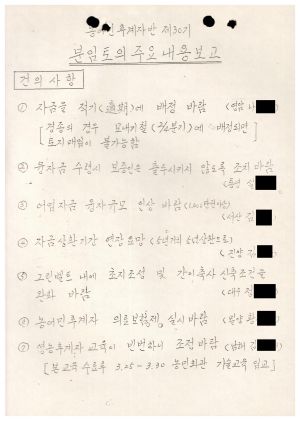 농어민후계자반 제30기
분임토의 주요내용보고
건의사항
① 자금을 적기(適期)에 배정 바람 (영암 나
[경종의 경우 모내기철(2/4분기)에 배정되면
토지매입이 불가능함]
② 융자금 수령시 보증인은 출수시키지 않도록 조치 바람
③ 어업자금 융자규모 인상 바람
(서산 김
④ 자금상환기간 연장 요망 (5년거치 5년상환으로)
⑤ 그린벨트 내에 초지조성 및 간이축사 신축조건을
완화 바람
⑥ 농어민후계자 의료보험제 실시 바람 (밀양 황
⑦ 영농후계자 교육이 빈번하니 조정 바람 (남해 김
[본 교육 수료후 3.25-3.30 농민회관 기술교육 입교]